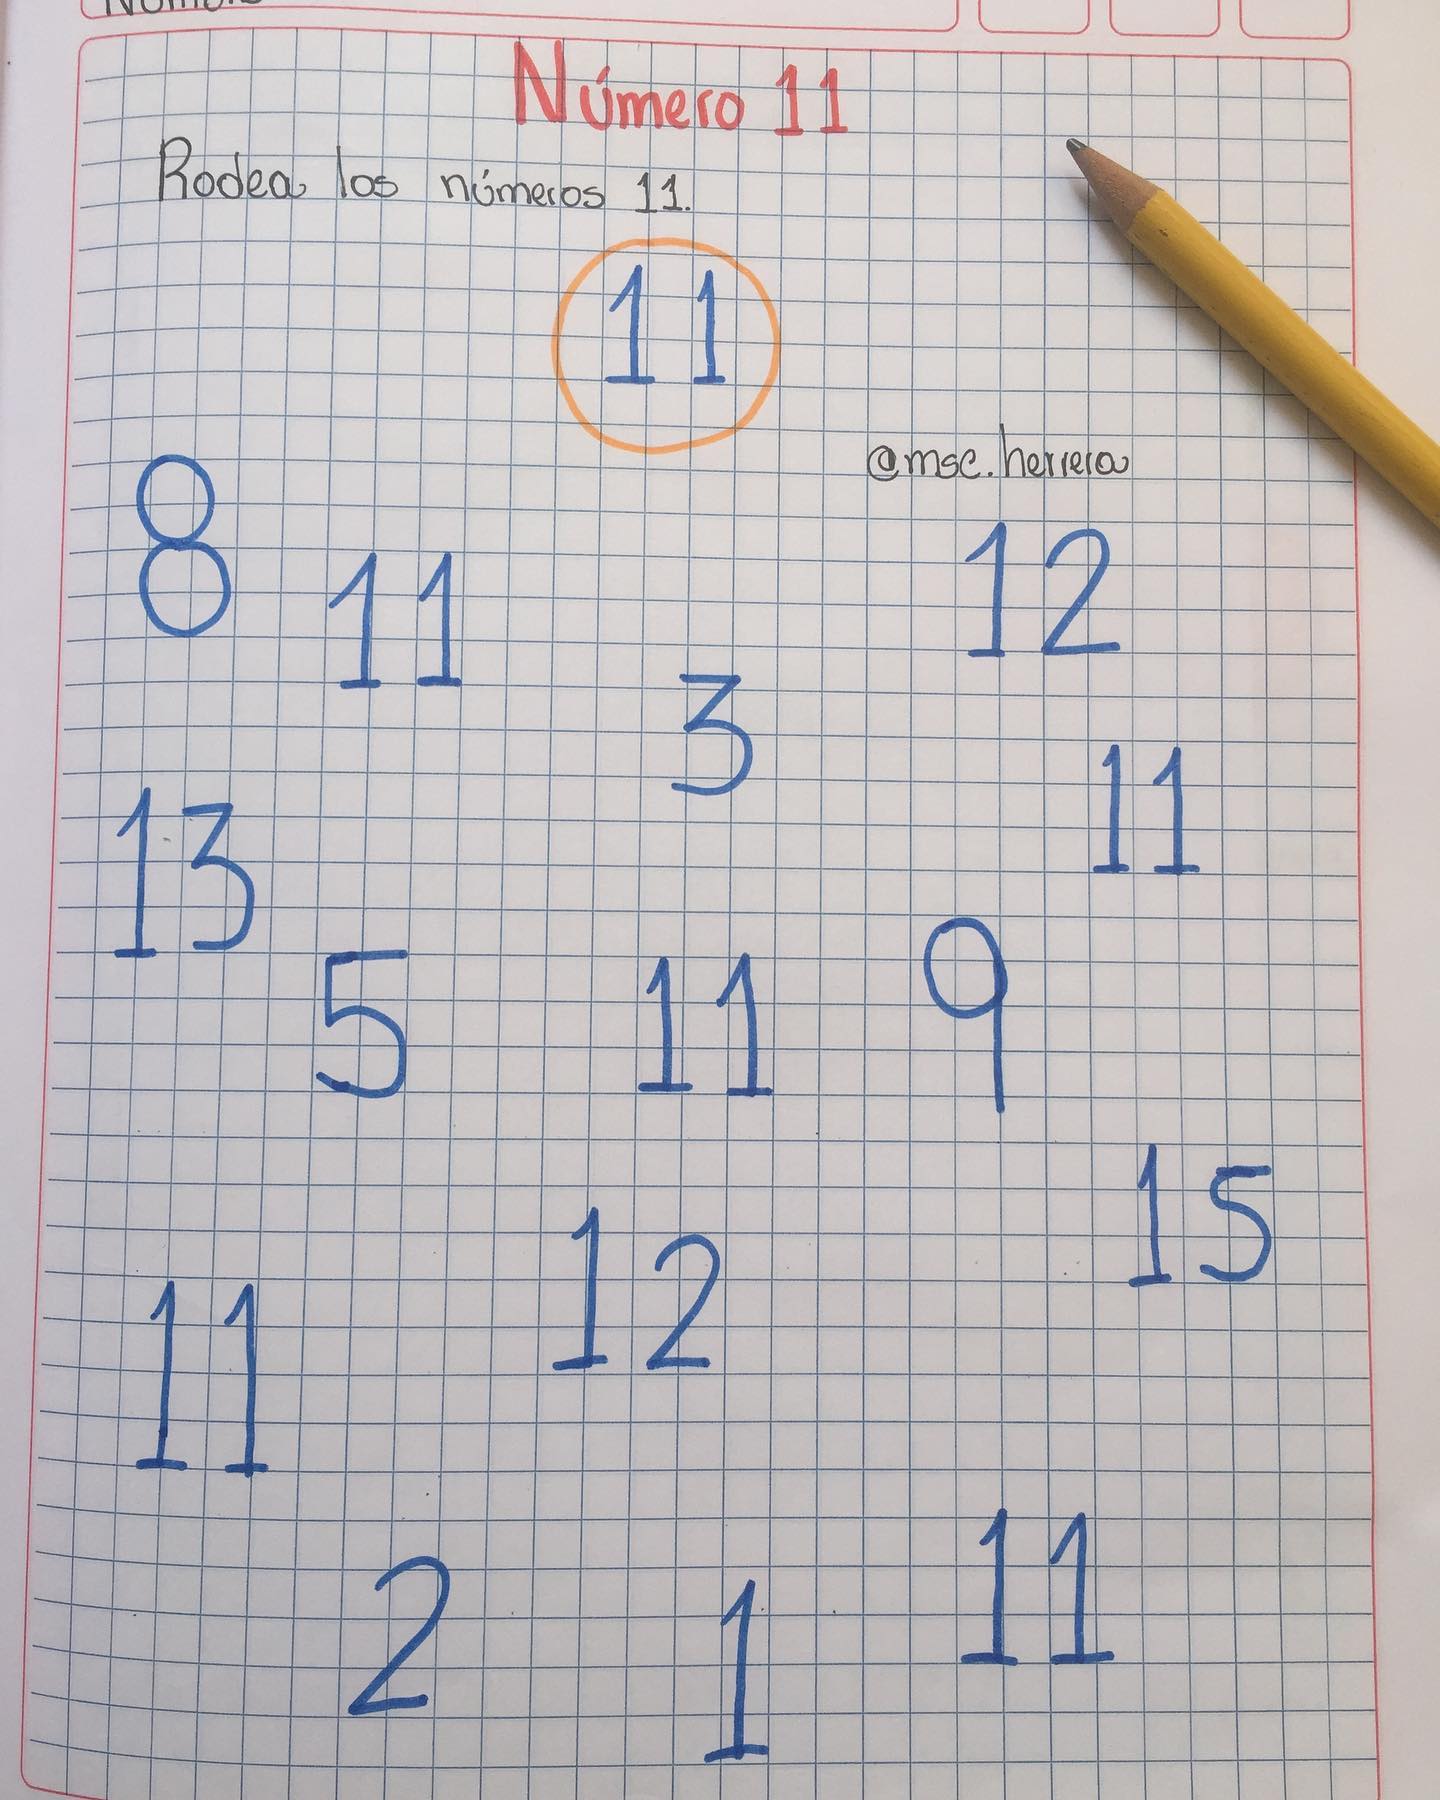 Número 11
Rodea los números 11.
11
@msc.herrera
8
11
12
3
11
13
5
11
9
15
12
11
2
1
11